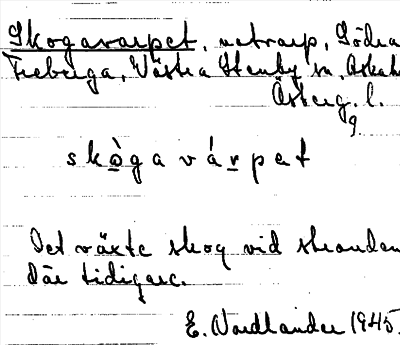 Skogavarpet, notvarp, Södra
Freberga, Västra Stenby sn, Aska h
Österg. l.
9
skògavárpet
Det växte skog vid stranden
där tidigare.
E. Nordlander 1945.